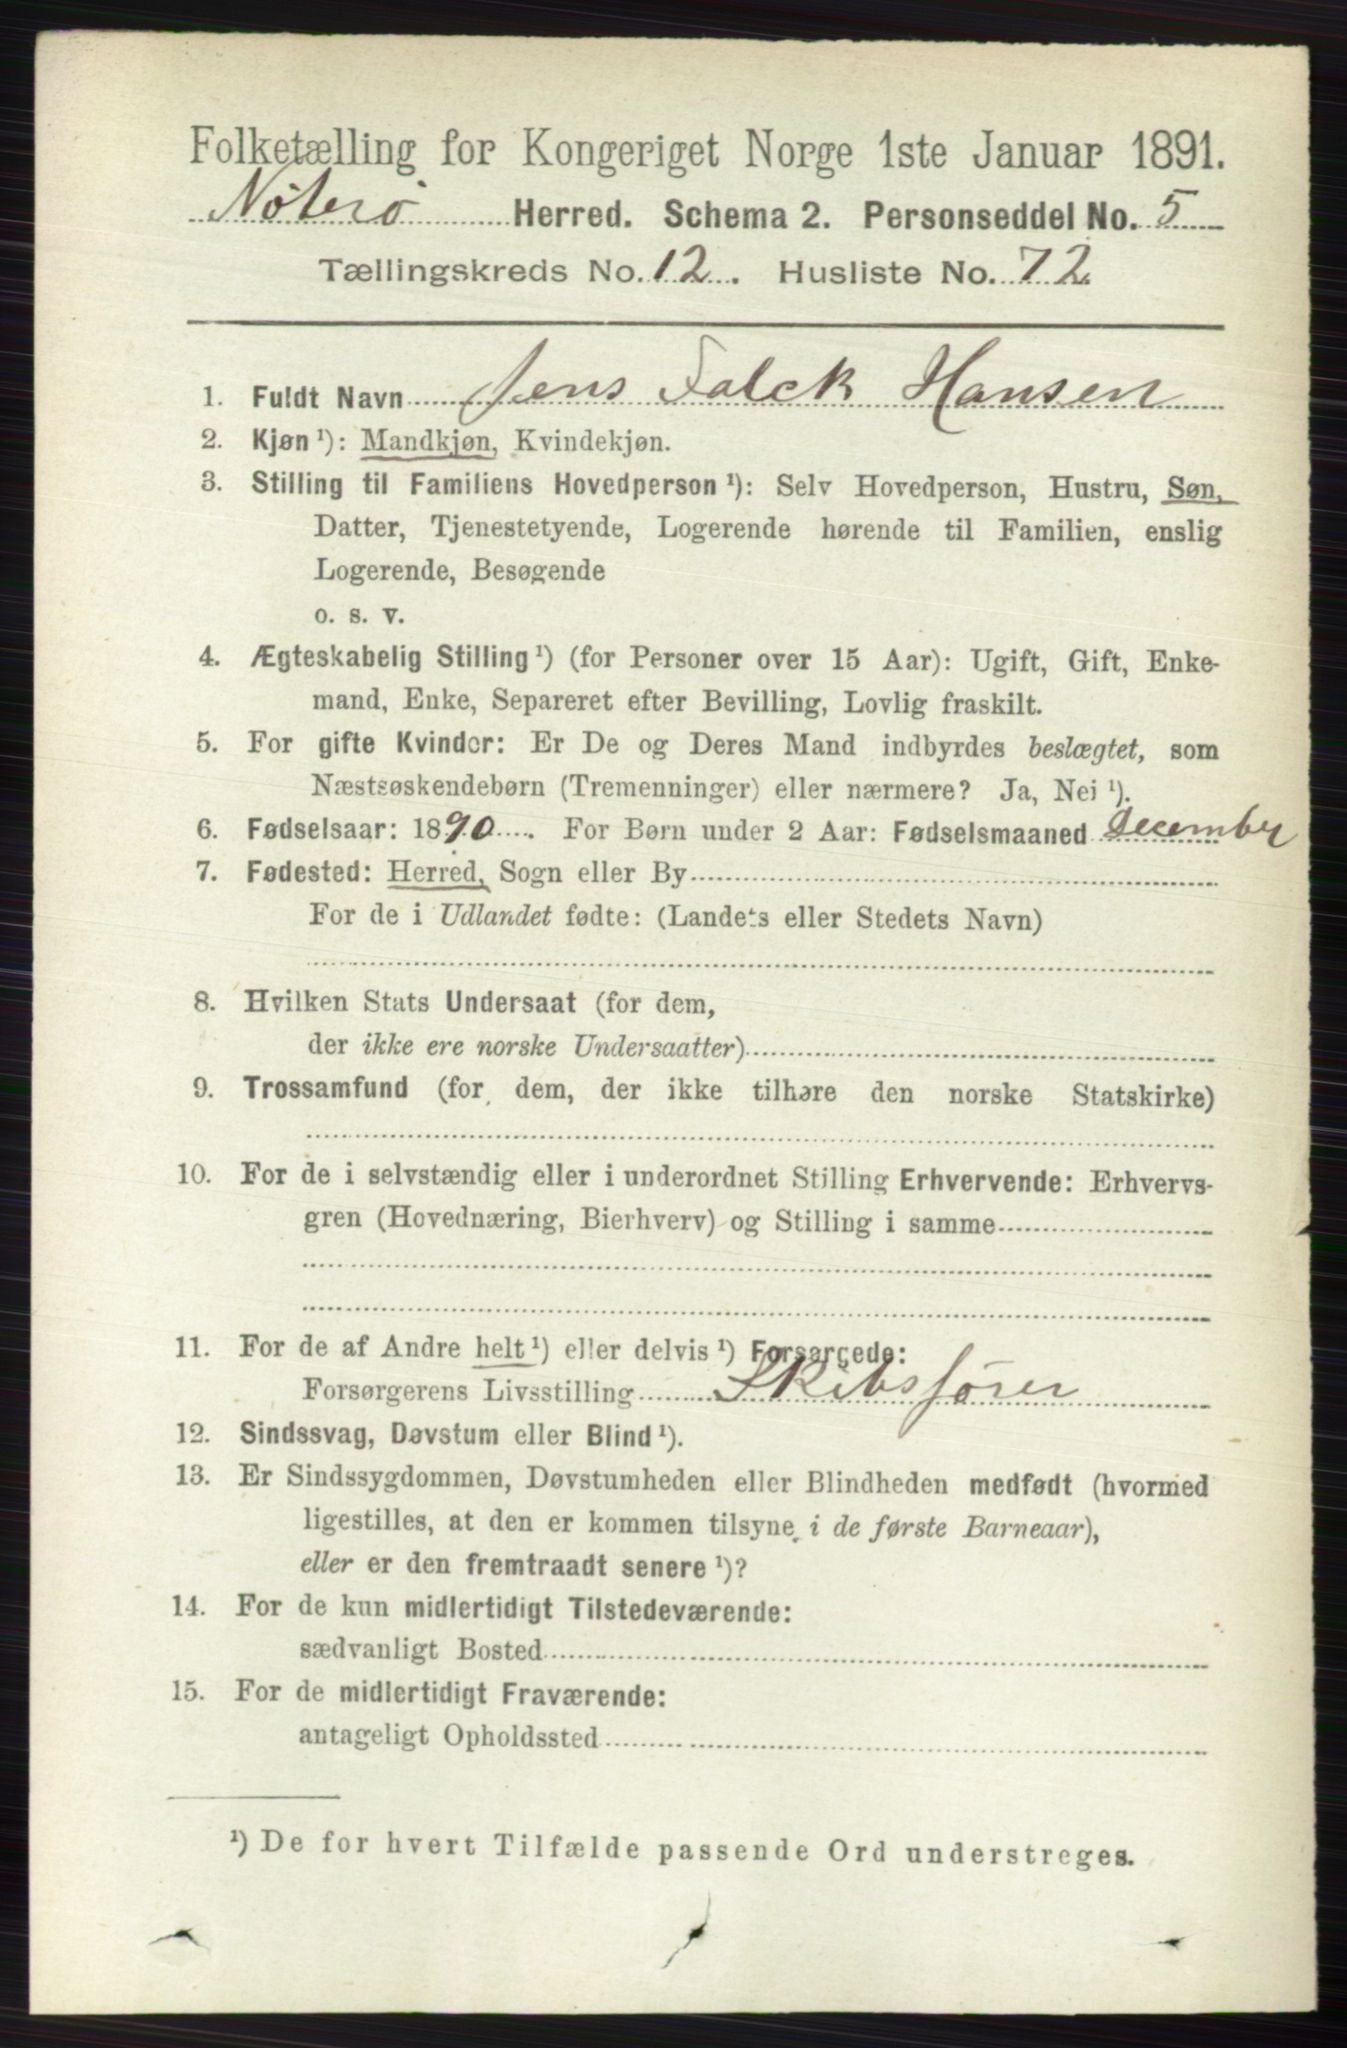 Folketælling for Kongeriget Norge 1ste Januar 1891.
Nøterø Herred. Schema 2. Personseddel No. 5
Tællingskreds No. 12. Husliste No. 72
1. Fuldt Navn Jens Falck Hansen
2. Kjøn ¹): Mandkjøn, Kvindekjøn.
3. Stilling til Familiens Hovedperson ¹): Selv Hovedperson, Hustru, Søn,
Datter, Tjenestetyende, Logerende hørende til Familien, enslig
Logerende, Besøgende
o. s. v.
4. Ægteskabelig Stilling ¹) (for Personer over 15 Aar): Ugift, Gift, Enke-
mand, Enke, Separeret efter Bevilling, Lovlig fraskilt.
5. For gifte Kvinder: Er De og Deres Mand indbyrdes beslægtet, som
Næstsøskendebørn (Tremenninger) eller nærmere? Ja, Nei ¹).
6. Fødselsaar: 1890. For Børn under 2 Aar: Fødselsmaaned December
7. Fødested: Herred, Sogn eller By
For de i Udlandet fødte: (Landets eller Stedets Navn)
8. Hvilken Stats Undersaat (for dem,
der ikke ere norske Undersaatter)
9. Trossamfund (for dem, der ikke tilhøre den norske Statskirke)
10. For de i selvstændig eller i underordnet Stilling Erhvervende: Erhvervs-
gren (Hovednæring, Bierhverv) og Stilling i samme
11. For de af Andre helt ¹) eller delvis ¹) Forsørgede:
Forsørgerens Livsstilling Skibsfører
12. Sindssvag, Døvstum eller Blind ¹).
13. Er Sindssygdommen, Døvstumheden eller Blindheden medfødt (hvormed
ligestilles, at den er kommen tilsyne i de første Barneaar),
eller er den fremtraadt senere ¹)?
14. For de kun midlertidigt Tilstedeværende:
sædvanligt Bosted
15. For de midlertidigt Fraværende:
antageligt Opholdssted
¹) De for hvert Tilfælde passende Ord understreges.